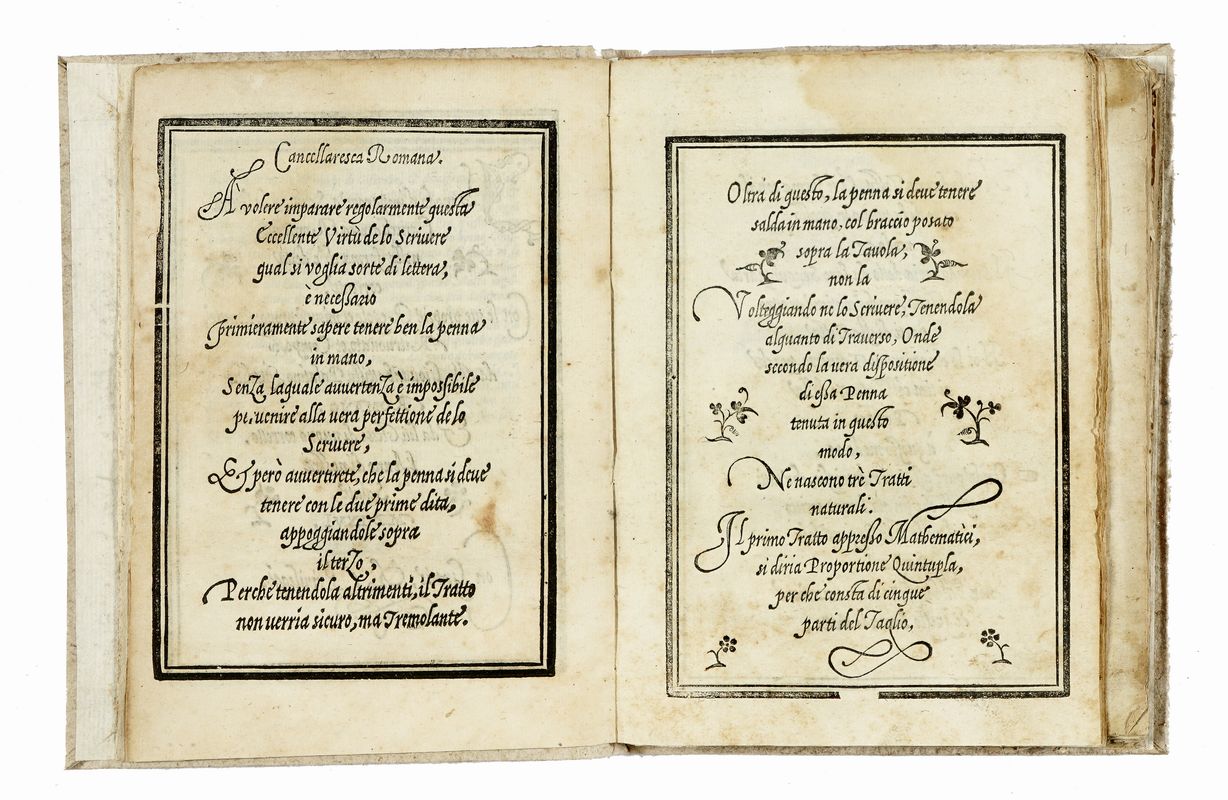 Cancellaresca Romana.
A volere imparare regolarmente questa
Eccellente Virtù de lo Scrivere
qual si voglia sorte di lettera,
è necessario
primieramente sapere tenere ben la penna
in mano,
SenZa laquale auuertenZa è impossibile
peruenire alla vera perfettione de lo
Scriuere,
Et però auuertirete, che la penna si deue
tenere con le due prime dita,
appoggiandole sopra
il terZo,
Perche tenendola altrimenti, il Tratto
non uerria sicuro, ma Tremolante.
Oltrà di questo, la penna si deue tenere
salda in mano, col braccio posato
sopra la Tauola,
non la
Volteggiando ne lo Scriuere, Tenendola
alquanto di Trauerso, Onde
secondo la uera dispositione
di essa Penna
tenuta in questo
modo,
Ne nascono trè Tratti
naturali.
Il primo Tratto appresso Mathematici,
si diria Proportione Quintupla,
per che consta di cinque
parti del Taglio,